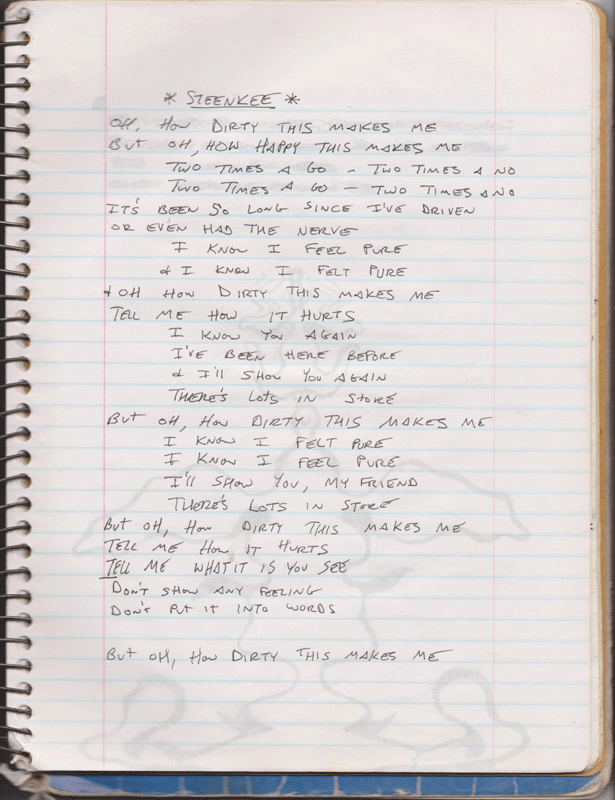 * STEENKEE *
OH, HOW DIRTY THIS MAKES ME
BUT OH, HOW HAPPY THIS MAKES ME
TWO TIMES A GO - TWO TIMES A NO
TWO TIMES A GO - TWO TIMES A NO
IT'S BEEN SO LONG SINCE I'VE DRIVEN
OR EVEN HAD THE NERVE
I KNOW I FEEL PURE
& I KNOW I FELT PURE
& OH HOW DIRTY THIS MAKES ME
TELL ME HOW IT HURTS
I KNOW YOU AGAIN
I'VE BEEN HERE BEFORE
& I'll SHOW YOU AGAIN
THERE'S LOTS IN STORE
BUT OH, HOW DIRTY THIS MAKES ME
I KNOW I FELT PURE
I KNOW I FEEL PURE
I'LL SHOW YOU, MY FRIEND
THERE'S LOTS IN STORE
BUT OH, HOW DIRTY THIS MAKES ME
TELL ME HOW IT HURTS
TELL ME WHAT IT IS YOU SEE
DON'T SHOW ANY FEELING
DON'T PUT IT INTO WORDS
BUT OH, HOW DIRTY THIS MAKES ME